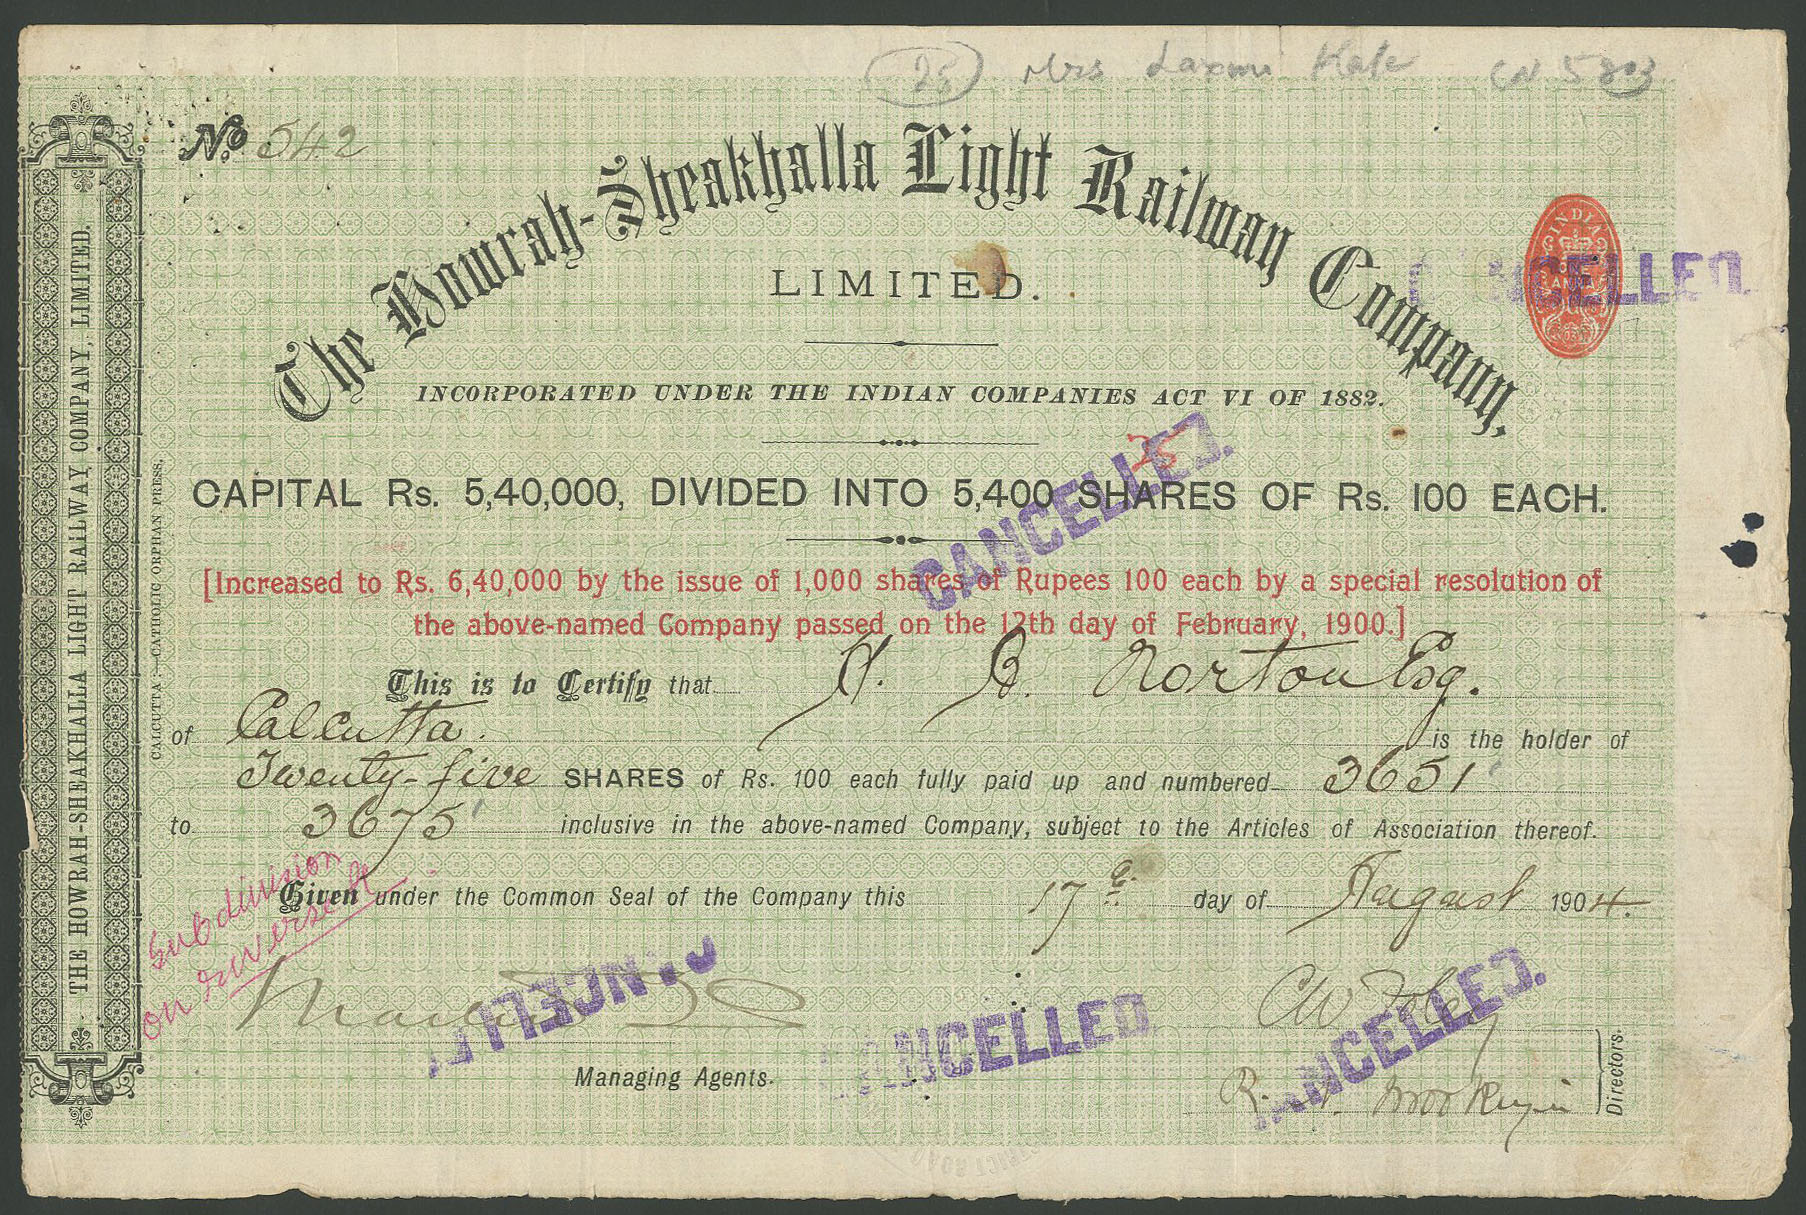 25 Mrs Laxmi Kale CN 5203
No 542
The Howrah-Sheakhalla Light Railway Company,
LIMITED.
INDIA
ONE
ANNA
CANCELLED
INCORPORATED UNDER THE INDIAN COMPANIES ACT VI OF 1882.
25
CANCELLED.
CAPITAL Rs. 5,40,000, DIVIDED INTO 5,400 SHARES OF Rs. 100 EACH.
[Increased to Rs. 6,40,000 by the issue of 1,000 shares of Rupees 100 each by a special resolution of
the above-named Company passed on the 12th day of February, 1900.]
This is to Certify that Norton Esq.
of Calcutta. is the holder of
Twenty-five SHARES of Rs. 100 each fully paid up and numbered 3651
to 3675 inclusive in the above-named Company, subject to the Articles of Association thereof.
Given under the Common Seal of the Company this 17th day of August 1904.
Subdivision
on reverse
CANCELLED
CANCELLED
CANCELLED.
Managing Agents.
Directors.
THE HOWRAH-SHEAKHALLA LIGHT RAILWAY COMPANY, LIMITED.
CALCUTTA:—CATHOLIC ORPHAN PRESS.